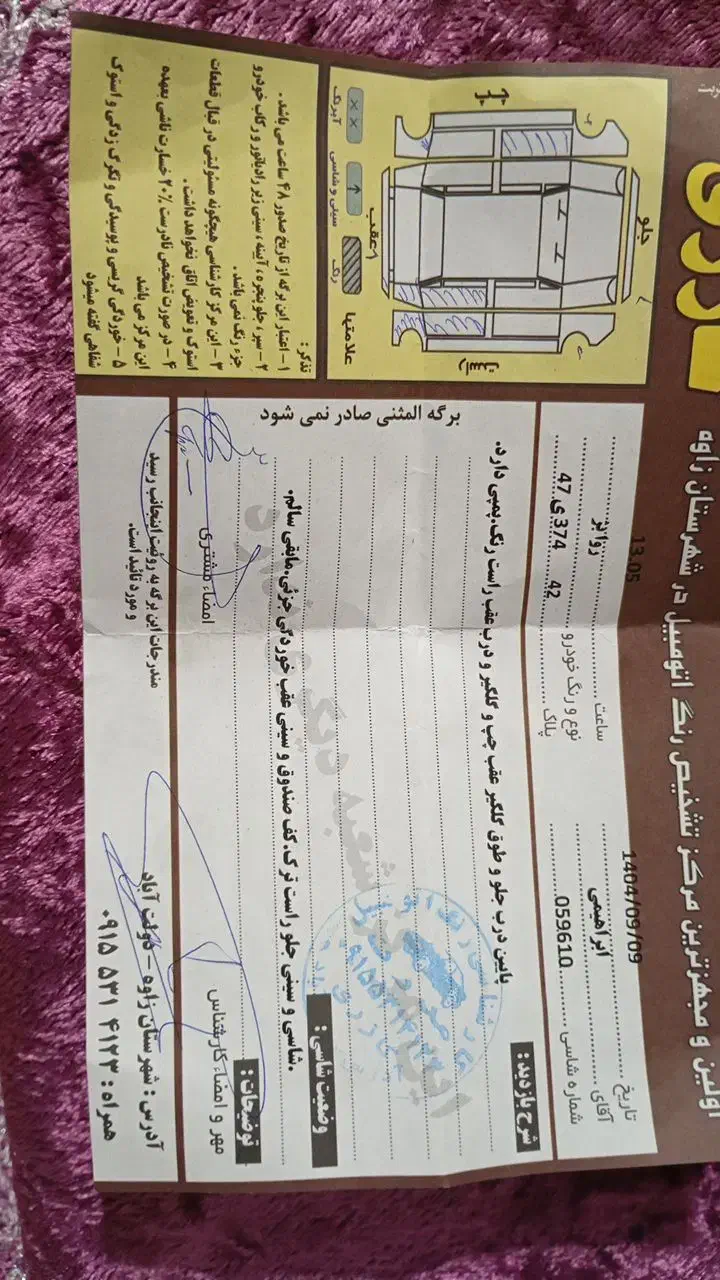 اولین و مجهزترین مرکز تشخیص رنگ اتومبیل در شهرستان زاوه
تاریخ 1404/09/09
ساعت 13.05
آقای ابراهیمی
نوع و رنگ خودرو روا بژ
شماره شاسی 059610
پلاک 42 374ی47
جلو
عقب
راست
علامتها
رنگ
سینی و شاسی
آبرنگ
تذکر :
۱ - اعتبار این برگه از تاریخ صدور ۴۸ ساعت می باشد .
۲ - سر ، جلو پنجره ، آیینه ، سینی زیر رادیاتور و رکاب خودرو جزء رنگ نمی باشد .
۳ - این مرکز کارشناسی هیچگونه مسئولیتی در قبال قطعات استوک و تعویض اتاق نخواهد داشت .
۴ - در صورت تشخیص نادرست ۲۰٪ خسارت ناشی بعهده این مرکز می باشد
۵ - خوردگی گریسی و پوسیدگی و نکرک زدگی و استوک شفاهی گفته میشود
شرح بازدید :
پایین درب جلو و طوق گلگیر عقب چپ و گلگیر و درب عقب راست رنگ.پمپی دارد.
برگه المثنی صادر نمی شود
وضعیت شاسی :
شاسی و سینی جلو راست ترک.کف صندوق و سینی عقب خوردگی جزئی.مابقی سالم.
توضیحات :
مهر و امضاء کارشناس
امضاء مشتری
مندرجات این برگه به روئیت اینجانب رسید
و مورد تائید است.
آدرس : شهرستان زاوه - دولت آباد
همراه : ۰۹۱۵ ۵۳۱ ۴۱۲۳